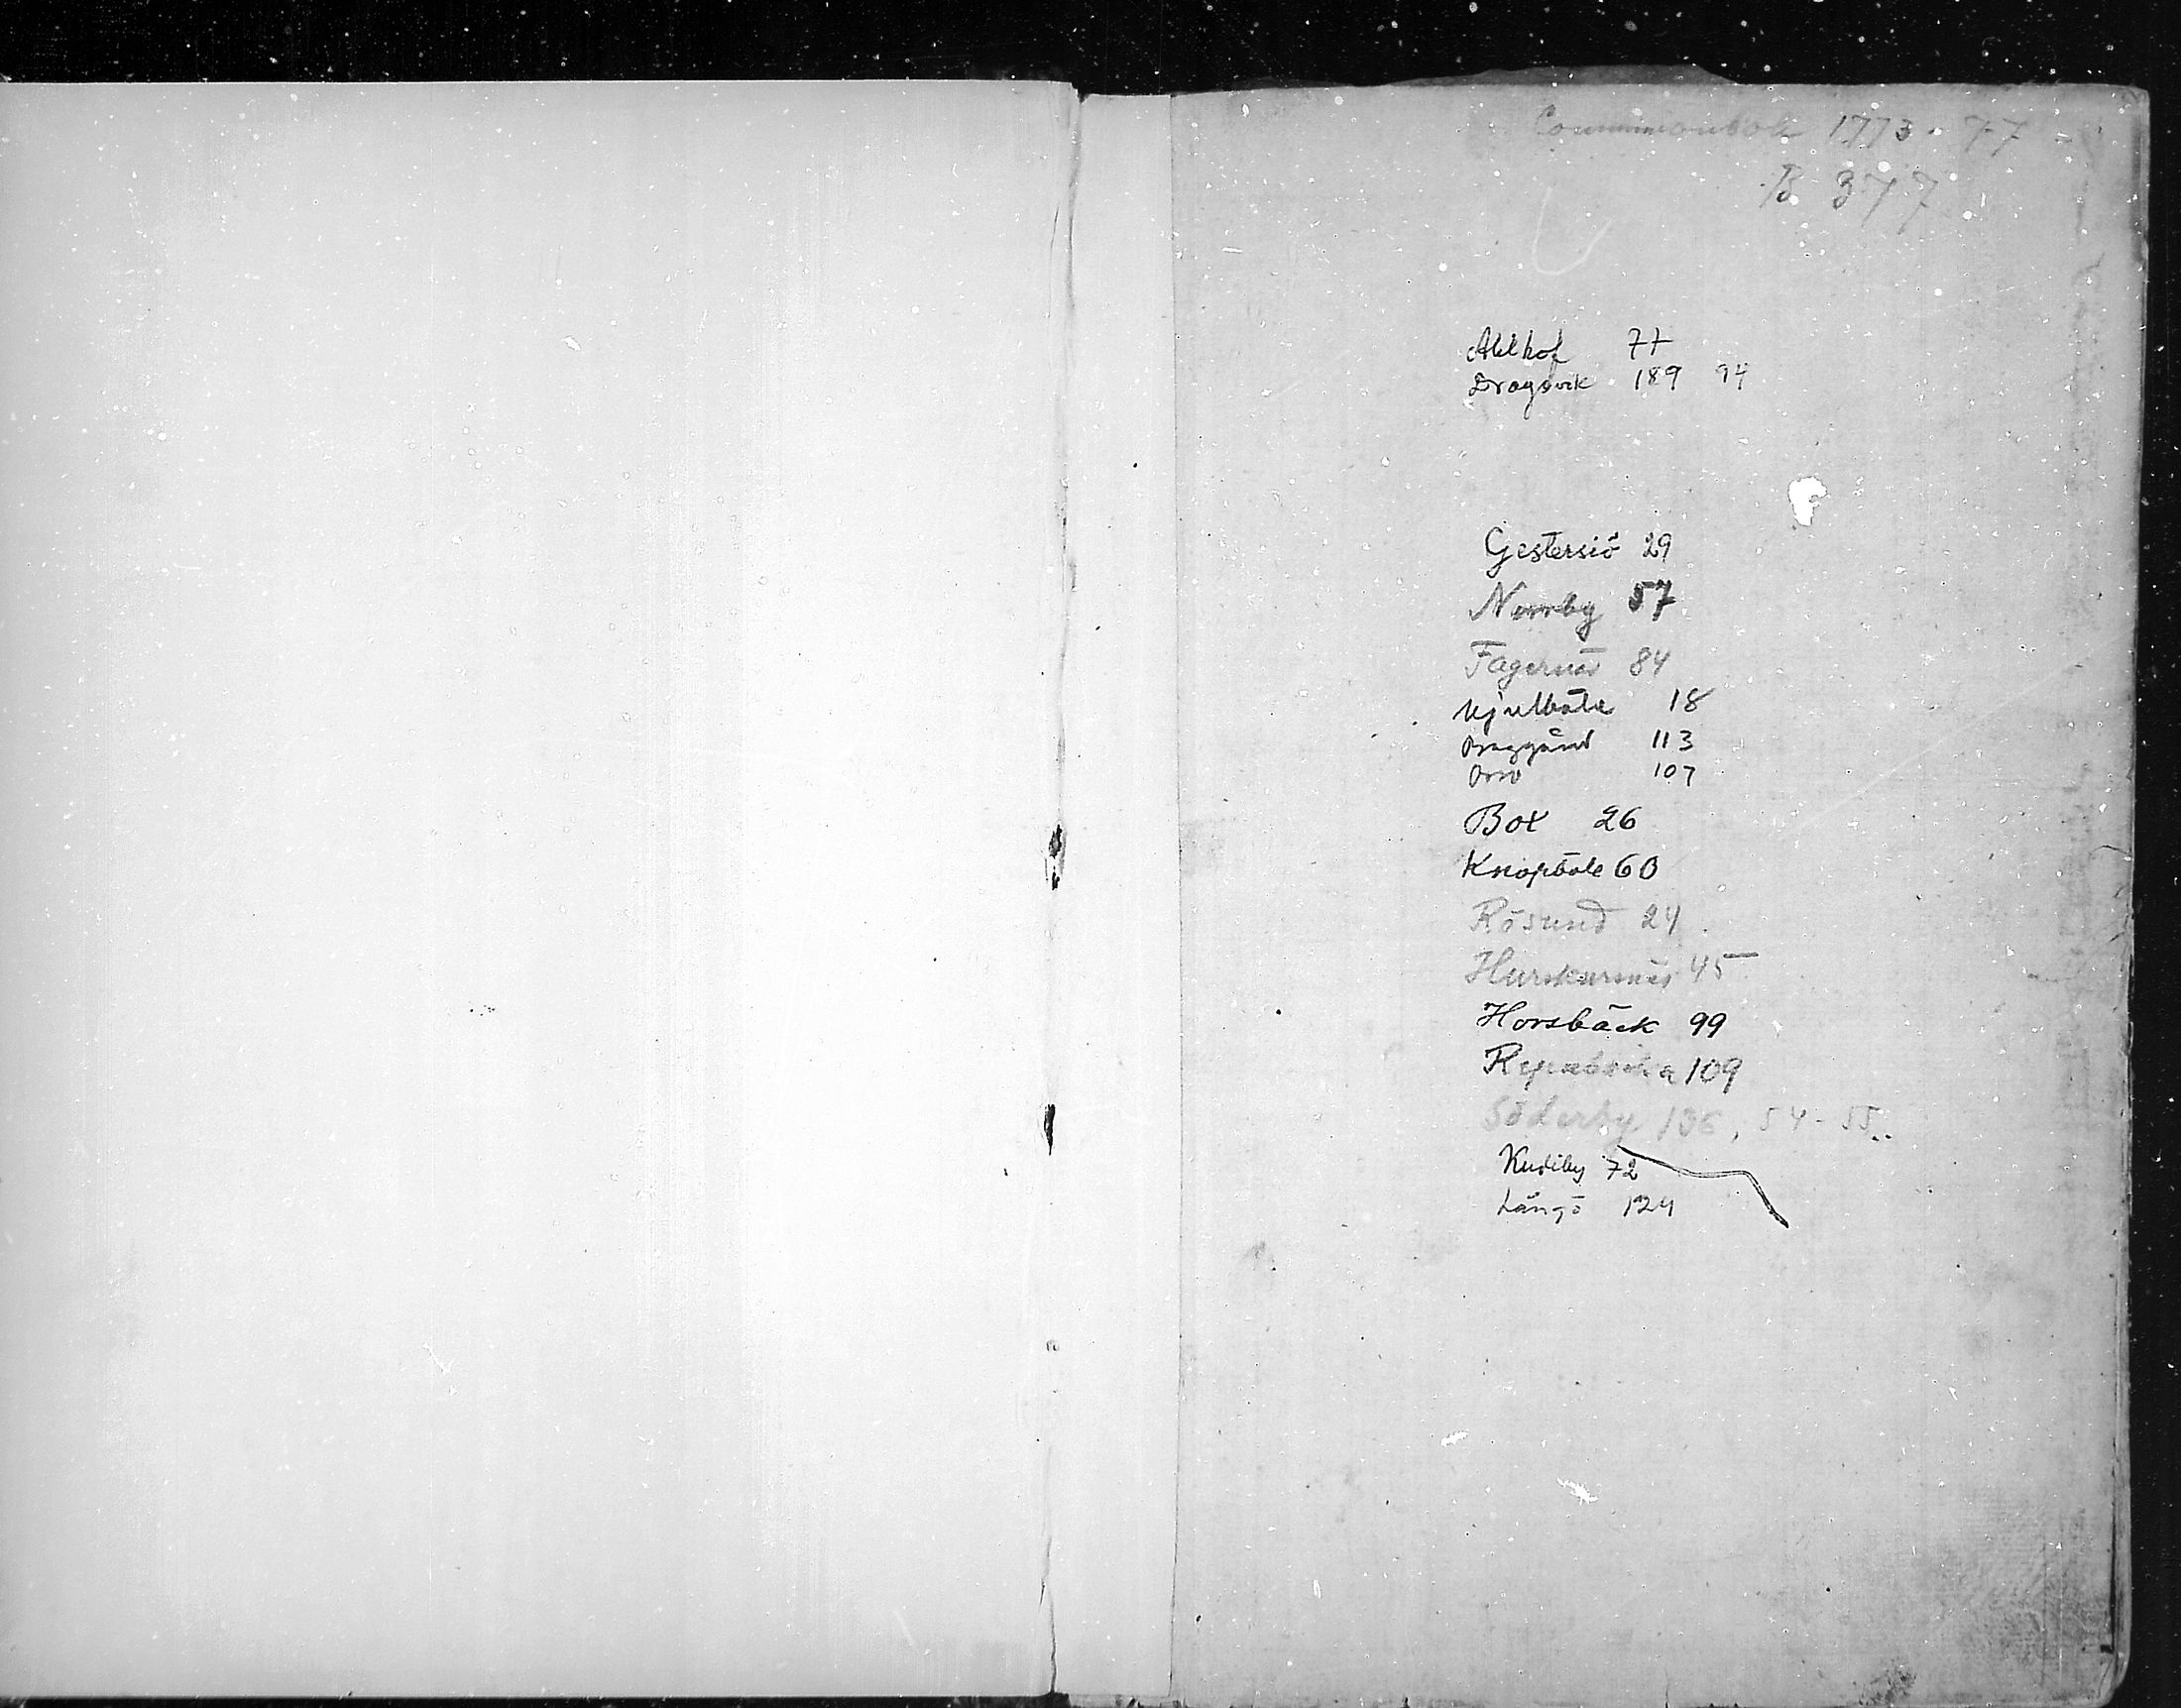 Communionbok 1773-77
B 377
Ahlhof 77
Dragsvik 189 94
Gestersiö 29
Norrby 57
Fagernäs 84
Kjulböle 18
Braggård 113
Box 26
Knapböle 60
Rösund 24
Hurskurnäs 45
Horsbäck 99
109
Söderby 136, 54-55
Kudiby 72
Långö 124